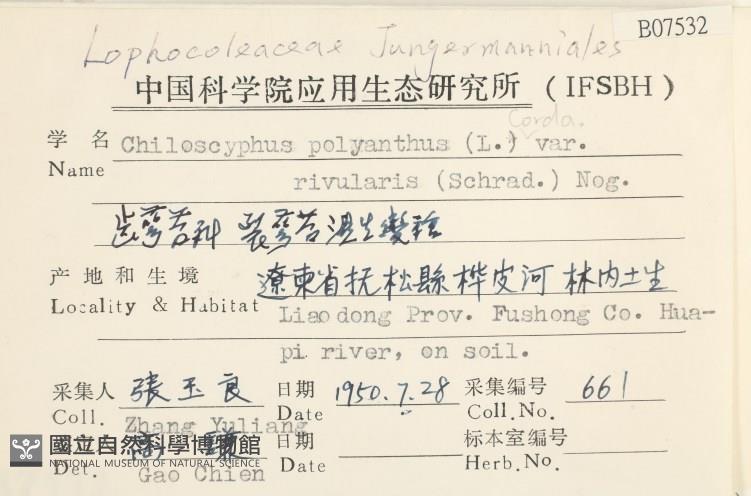 B07532
Lophocoleaceae Jungermanniales
中国科学院应用生态研究所 (IFSBH)
Corda.
学名 Chiloscyphus polyanthus (L.) var.
Name rivularis (Schrad.) Nog.
齿萼苔科 裂萼苔湿生變種
产地和生境 遼東省抚松縣桦皮河林内土生
Locality & Habitat Liaodong Prov. Fushong Co. Hua-
pi river, on soil.
采集人 張玉良 日期 1950.7.28 采集编号 661
Coll. Zhang Yuliang Date Coll.No.
國立自然科學博物館 日期 标本室编号
NATIONAL MUSEUM OF NATURAL SCIENCE
Det. Gao Chien Date Herb.No.